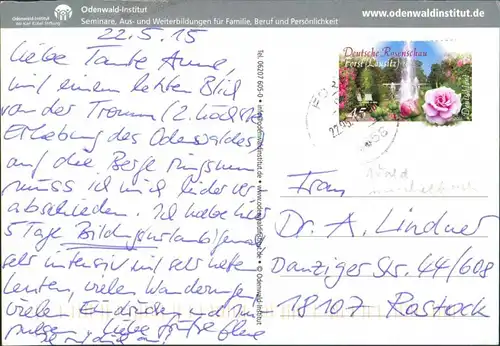 Odenwald-Institut
der Karl Kübel Stiftung
www.odenwaldinstitut.de
Seminare, Aus- und Weiterbildungen für Familie, Beruf und Persönlichkeit
22.5.15
Liebe Tante Anne,
mit einem letzten Blick
von der Tromm (2. höchste
Erhebung des Odenwaldes)
auf die Berge ringsum
muss ich mich leider ver-
abschieden. Ich habe hier
5 Tage Bildungsurlaub gemacht
sehr intensiv mit sehr netten
Leuten, vielen Wanderungen,
vielen Eindrücken und
Liebe Grüße
Tel. 06207 605-0 • info@odenwaldinstitut.de • www.odenwaldinstitut.de • © Odenwald-Institut
Deutsche Rosenschau
Forst (Lausitz)
Deutschland
22.05.15
Frau
Dr. A. Lindner
Danziger Str. 44/608
18107 Rostock